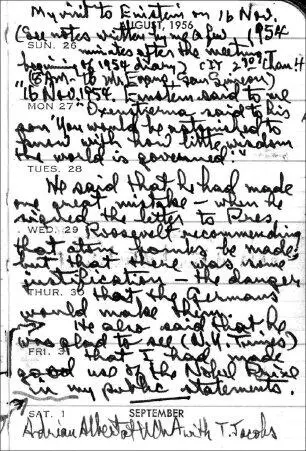 My visit to Einstein on 16 Nov.
AUGUST, 1956
(See notes written by me a few 1954
SUN. 26
minutes after the meeting,
beginning of 1954 diary)
(8AM - to Mr. San Simeon)
"16 Nov. 1954 Einstein said to me
MON. 27 "Oxenstierna said to his
son 'You would be astonished to
know with how little wisdom
the world is governed.'"
TUES. 28
He said that he had made
one great mistake - when he
signed the letter to Pres.
WED. 29 Roosevelt recommending
that atom bombs be made;
but that there was some
justification - the danger
THUR. 30 that the Germans
would make them.
He also said that he
was glad to see (N.Y. Times)
FRI. 31 that I had made
good use of the Nobel Prize
in my public statements.
SAT. 1 SEPTEMBER
Adrian Albert at with T. Jacobs